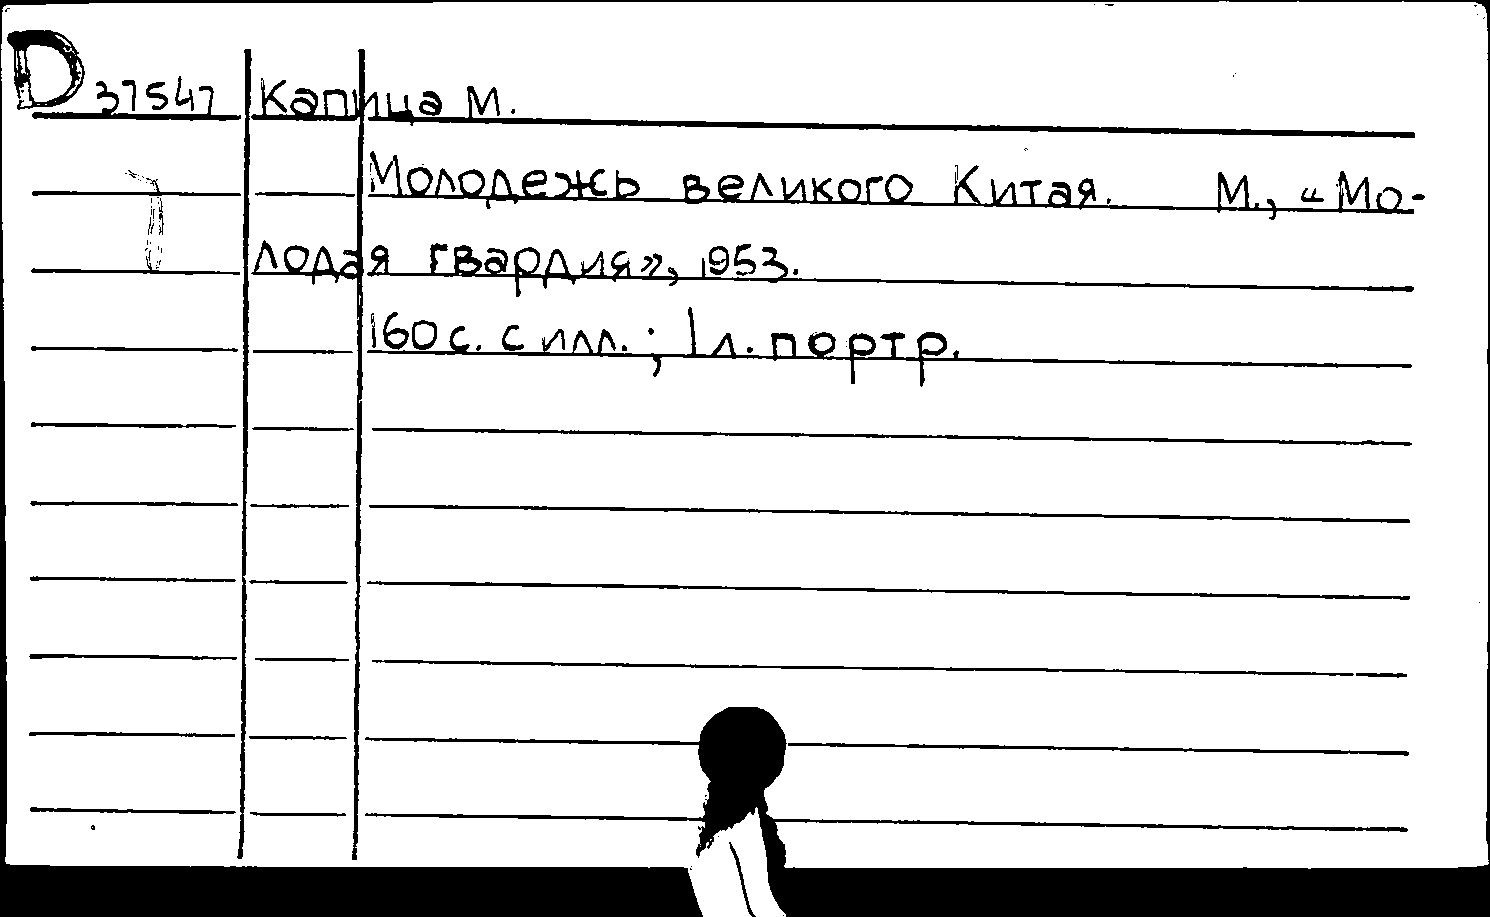 D 37547 Капица М.
Молодежь великого Китая. М., «Мо-
лодая гвардия», 1953.
160 с. с илл. ; 1 л. портр.